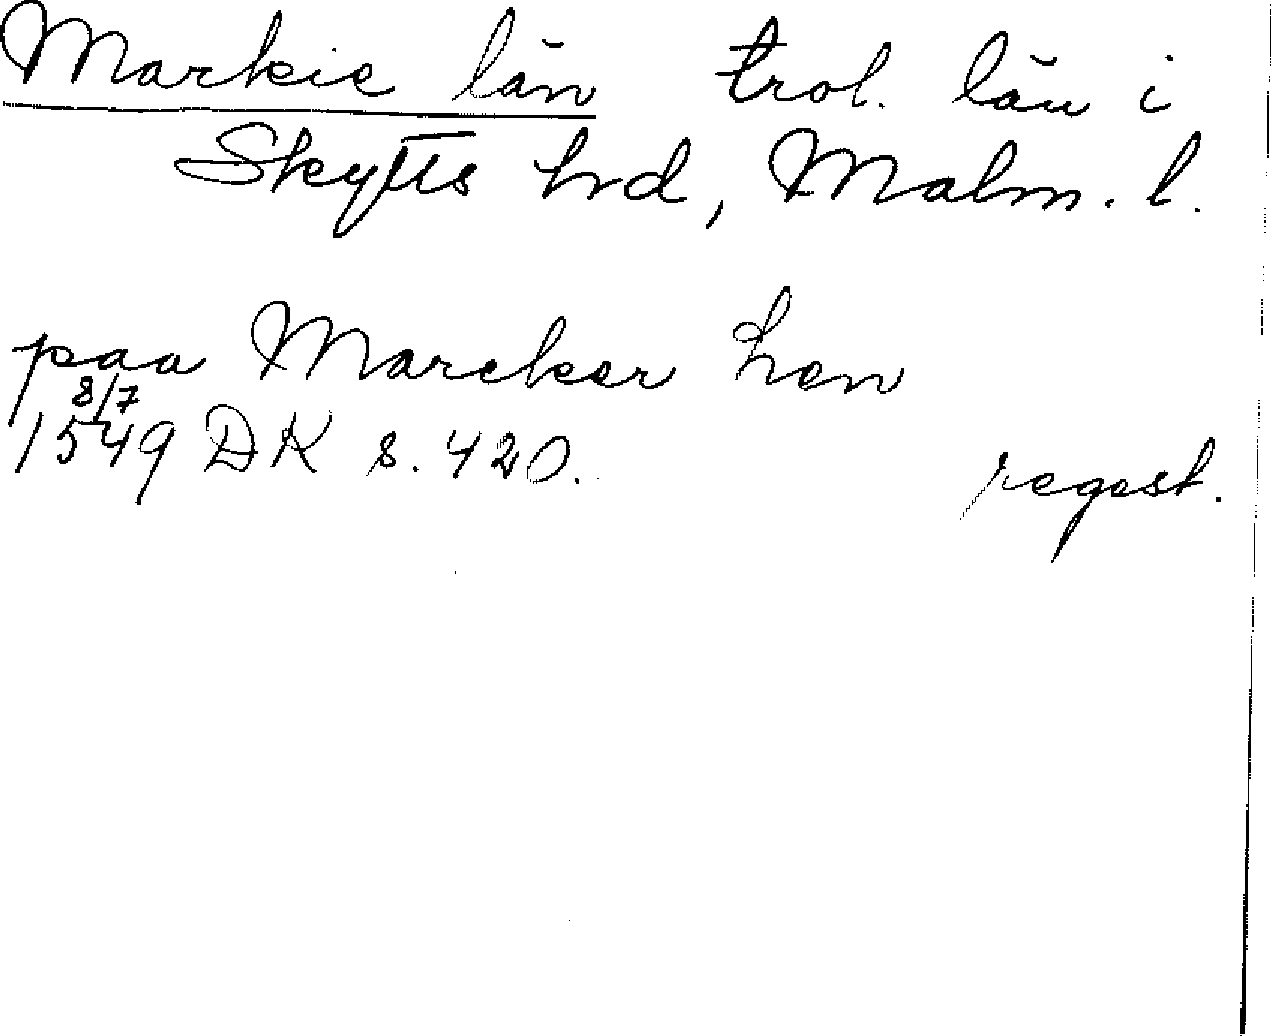 Markie län trol. län i
Skytts hrd, Malm. l.
paa Marcker hen
8/7
1549 DK s. 420.
regest.